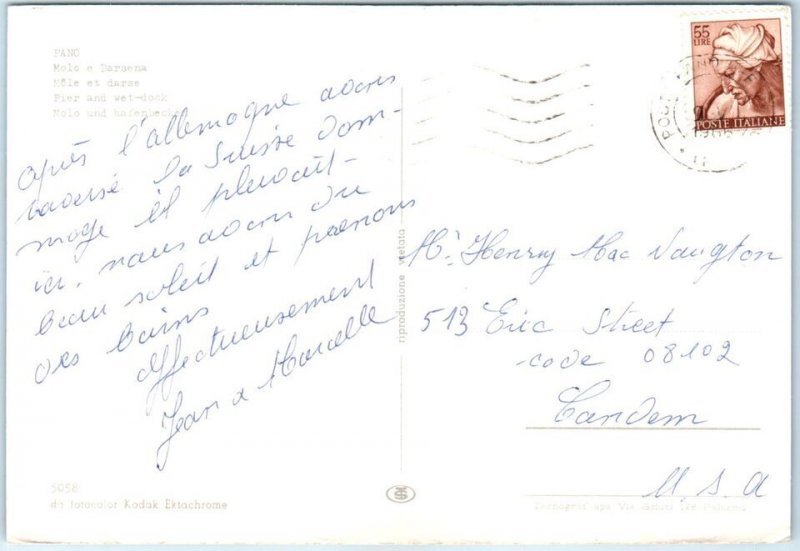 FANO
Molo e Darsena
Môle et darse
Pier and wet-dock
Molo und hafenbecken
après l'allemagne avons
traversé la Suisse dom-
mage il pleuvait -
ici, nous avons du
beau soleil et prenons
des bains
affectueusement
Jean & Marcelle
5058
da fotocolor Kodak Ektachrome
riproduzione vietata
55
LIRE
POSTE ITALIANE
Mr. Henry Mac Naugton
513 Eric Street
code 08102
Camdem
U. S. A
Tecnograf spa Via